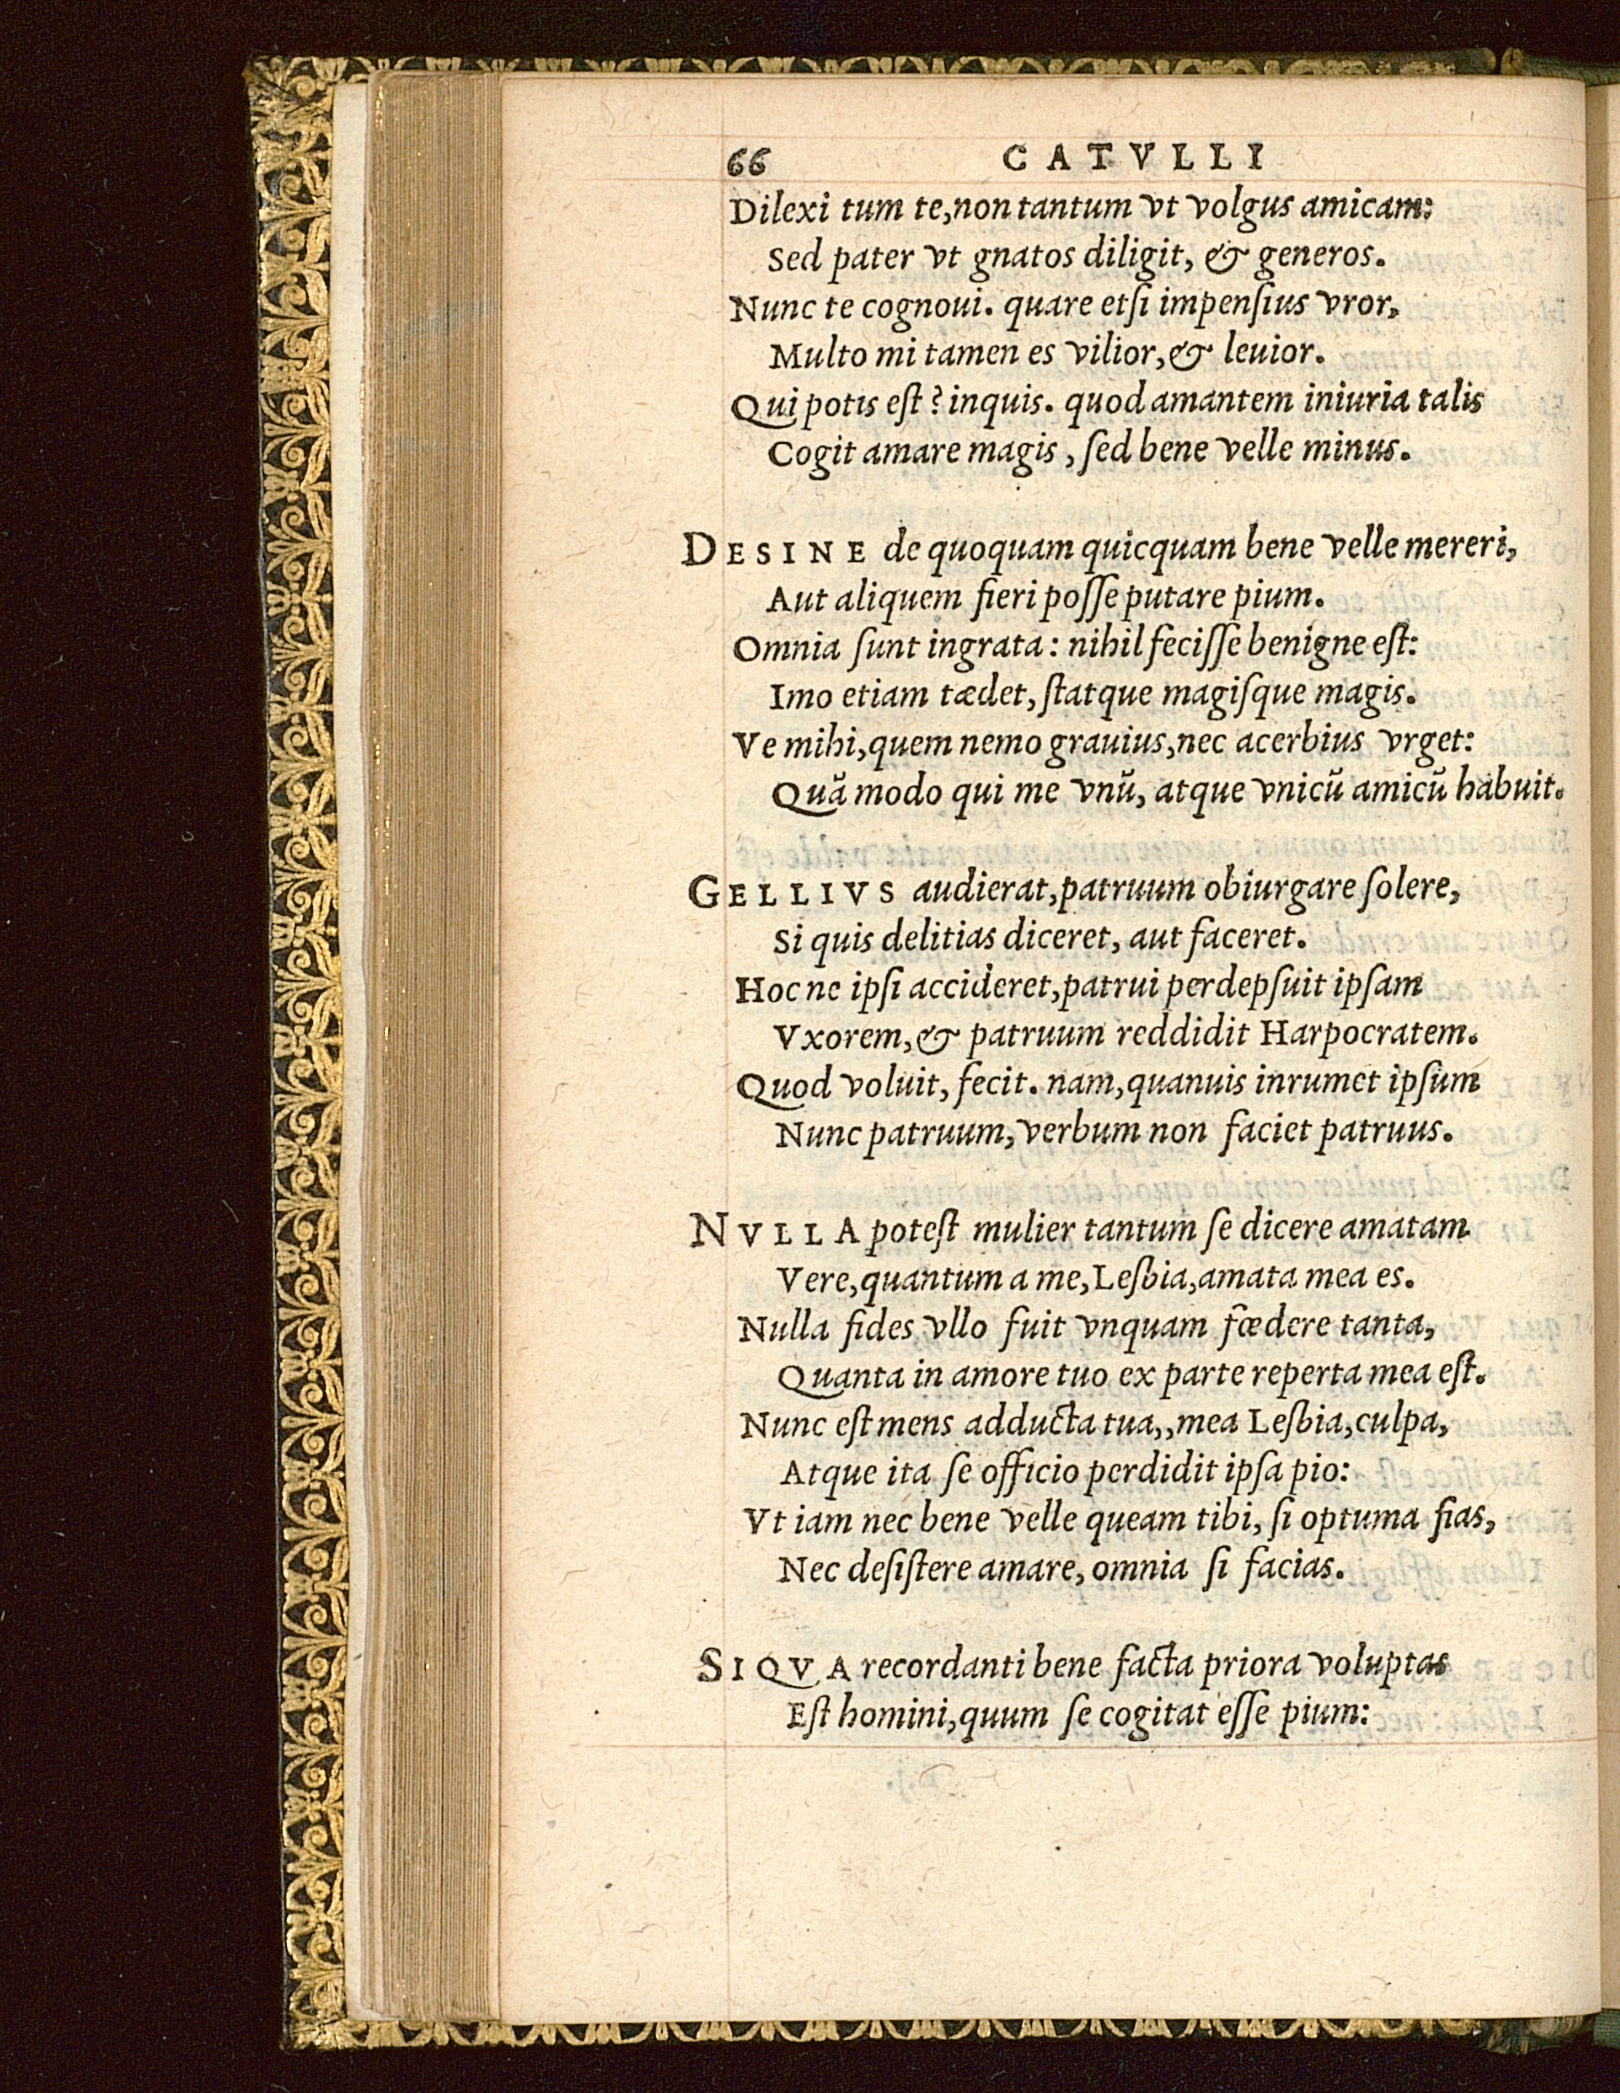 66 CATVLLI
Dilexi tum te,non tantum vt volgus amicam:
Sed pater vt gnatos diligit, & generos.
Nunc te cognoui. quare etſi impenſius vror,
Multo mi tamen es vilior,& leuior.
Qui potis eſt? inquis. quod amantem iniuria talis
Cogit amare magis, ſed bene velle minus.
DESINE de quoquam quicquam bene velle mereri,
Aut aliquem fieri poſſe putare pium.
Omnia ſunt ingrata: nihil feciſſe benigne eſt:
Imo etiam tædet, ſtatque magiſque magis.
Ve mihi,quem nemo grauius,nec acerbius vrget:
Quã modo qui me vnũ, atque vnicũ amicũ habuit.
GELLIVS audierat,patruum obiurgare ſolere,
Si quis delitias diceret, aut faceret.
Hoc ne ipſi accideret,patrui perdepſuit ipſam
Vxorem,& patruum reddidit Harpocratem.
Quod voluit, fecit. nam,quanuis inrumet ipſum
Nunc patruum, verbum non faciet patruus.
NVLLA poteſt mulier tantum ſe dicere amatam
Vere,quantum a me,Leſbia,amata mea es.
Nulla fides vllo fuit vnquam fœdere tanta,
Quanta in amore tuo ex parte reperta mea eſt.
Nunc eſt mens adducta tua,,mea Leſbia,culpa,
Atque ita ſe officio perdidit ipſa pio:
Vt iam nec bene velle queam tibi, ſi optuma fias,
Nec deſiſtere amare, omnia ſi facias.
SIQVA recordanti bene facta priora voluptas
Eſt homini,quum ſe cogitat eſſe pium: